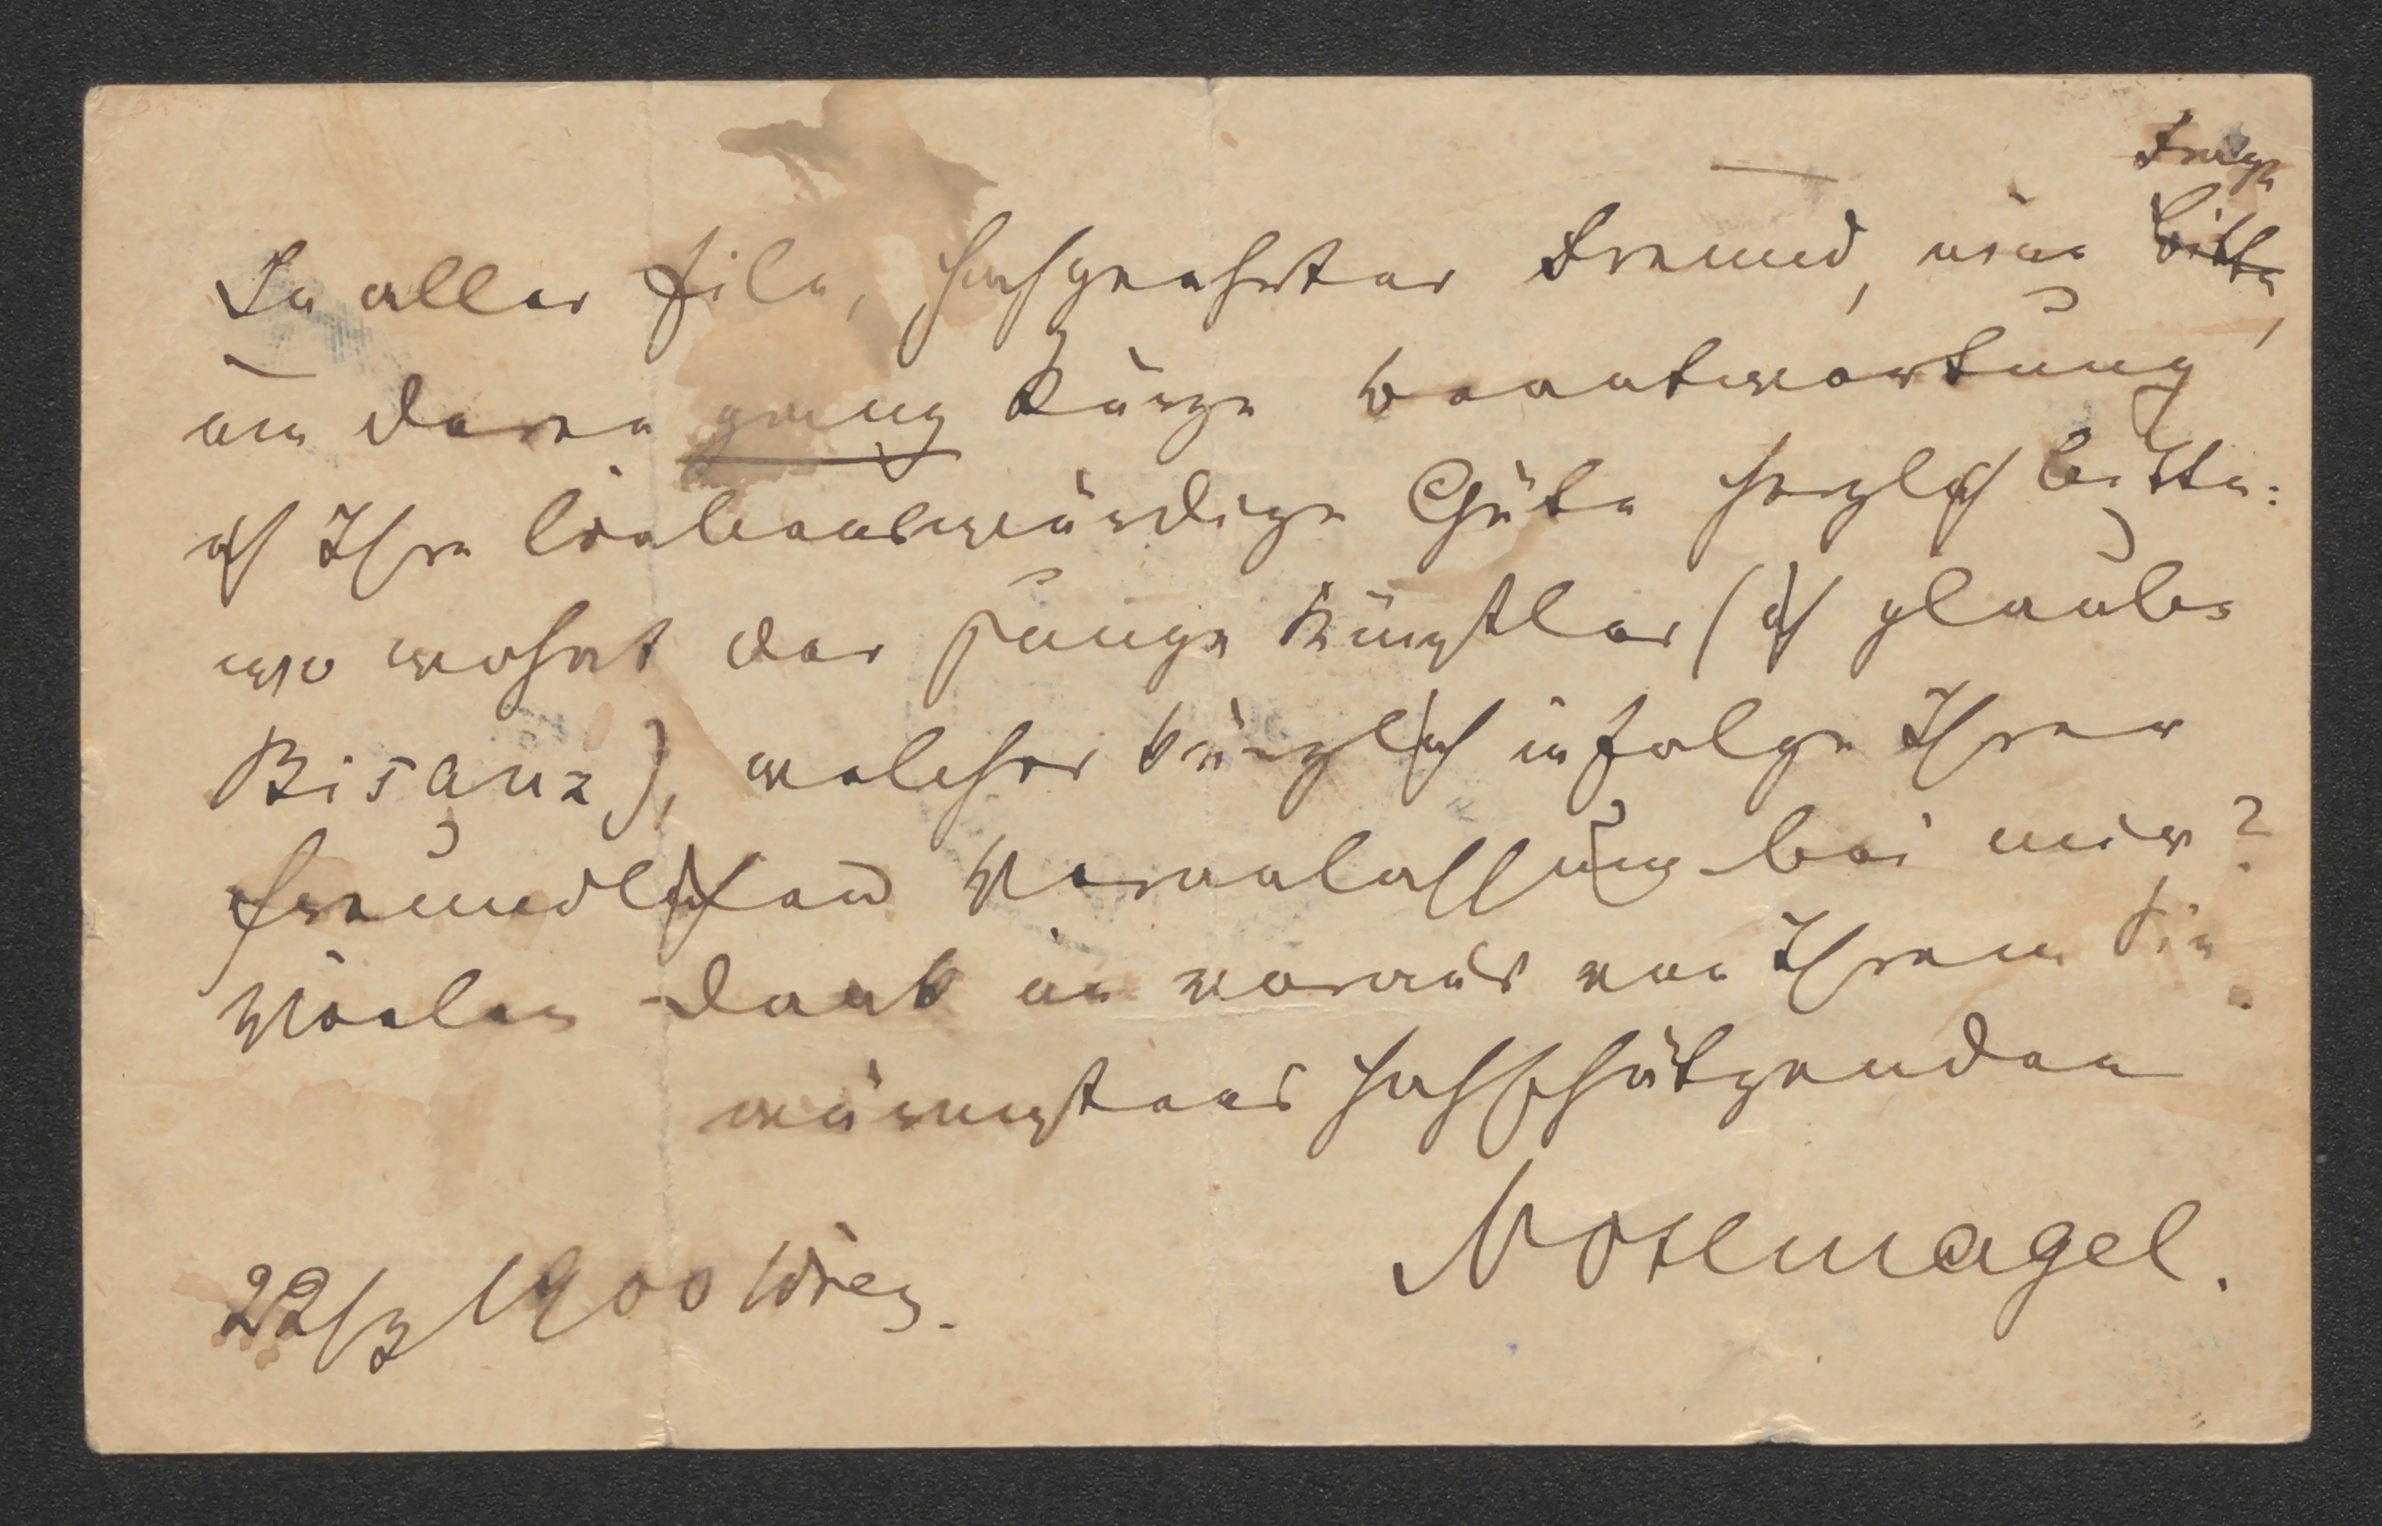 Frage
In aller Eile, hochgeehrter Freund, eine Bitte,
um deren ganz kurze Beantwortung
ich Ihre liebenswürdige Güte herzlich bitte:
wo wohnt der junge Künstler (ich glaube
Bisanz), welcher kürzlich infolge Ihrer
freundlichen Veranlassung bei mir?
Vielen Dank im voraus von Ihrem Sie
wärmstens hochschätzenden
Nothnagel.
22/3 1900 Wien.